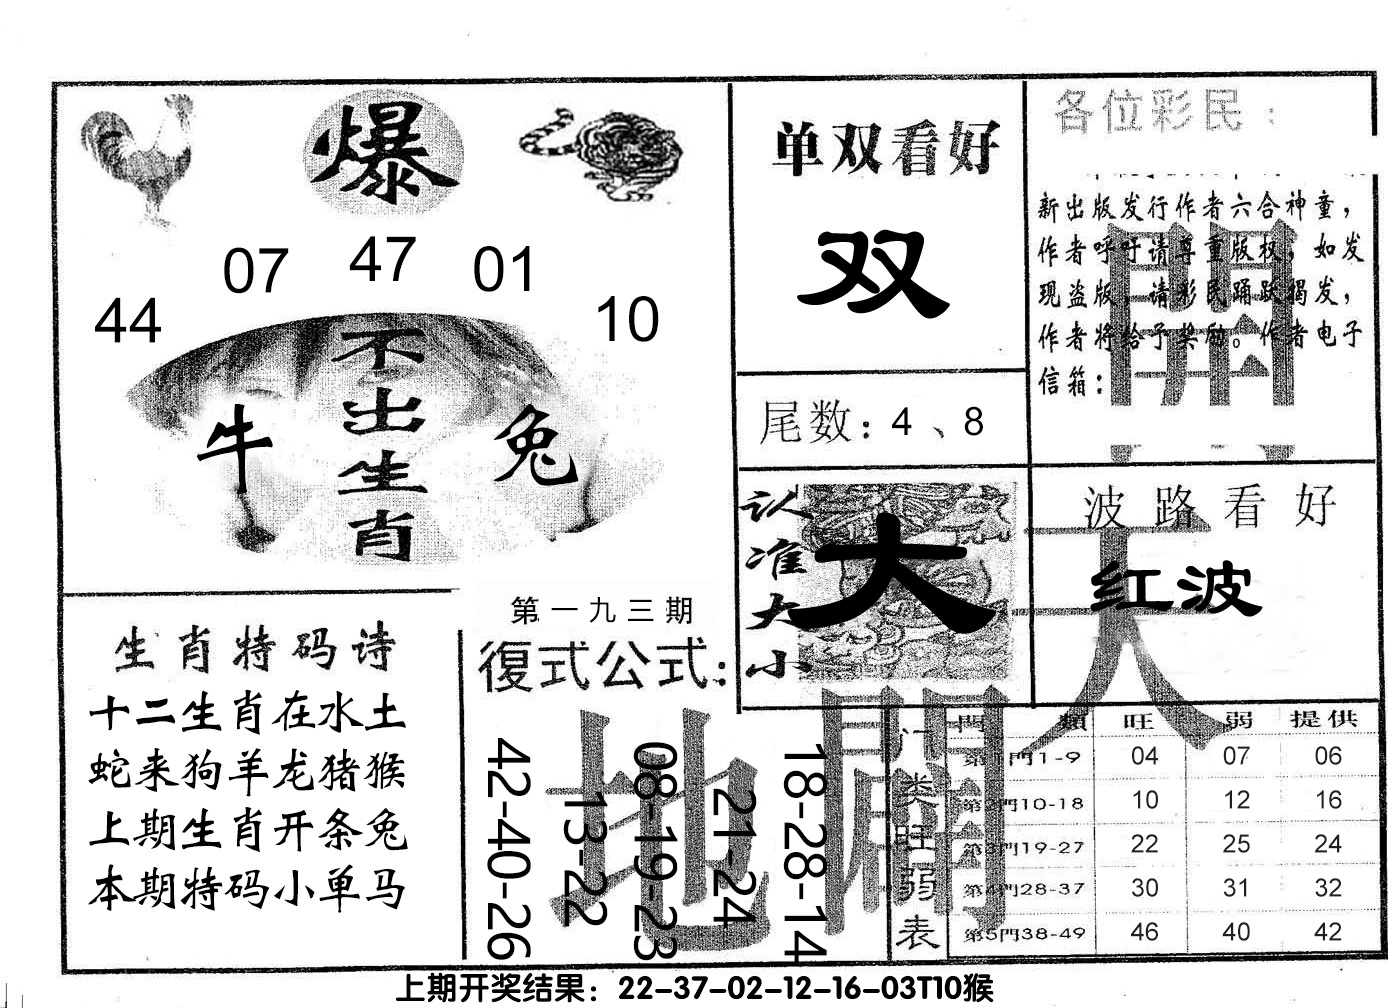 爆
44
07
47
01
10
不出生肖
牛
兔
单双看好
双
尾数：4、8
认准大小
大
各位彩民：
新出版发行作者六合神童，
作者呼吁请尊重版权，如发
现盗版，请彩民踊跃揭发，
作者将给予奖励。作者电子
信箱：
開
波路看好
红波
天
生肖特码诗
十二生肖在水土
蛇来狗羊龙猪猴
上期生肖开条兔
本期特码小单马
第一九三期
復式公式：
42-40-26
13-22
08-19-23
21-24
18-28-14
地
門类旺弱表
門類 旺 弱 提供
第1門1-9 04 07 06
第2門10-18 10 12 16
第3門19-27 22 25 24
第4門28-37 30 31 32
第5門38-49 46 40 42
上期开奖结果：22-37-02-12-16-03T10猴